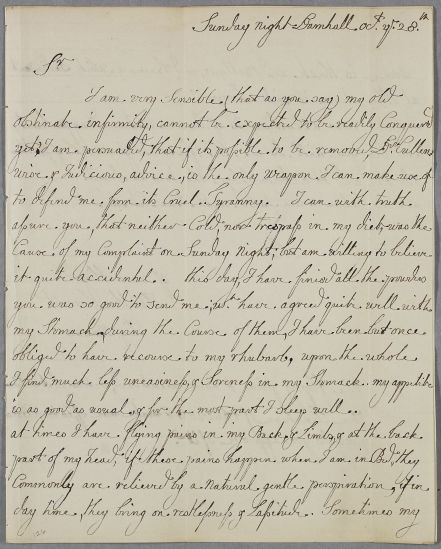 Sunday night Bamhall. Octr. ye. 28.
Sr
I am very Sensible, (that as you say) my old
obstinate infirmity, cannot be expected to be readily Conquerd
yet I am persuaded, that if it's possible to be removed Dr. Cullens
wise & Judicious, advice, is the only weapon I can make use of
to defend me from its Cruel Tyranny. I can with truth
assure you, that neither Cold, nor trespass in my diet, was the
Cause of my Complaint on Sunday Night, but am willing to believe
it quite accidental.. this day, I have finish'd all the powders
you was so good to send me, wch. have agreed quite well with
my Stomach, during the Course of them, I have been but once
obliged to have recourse to my rhubarb, upon the whole
I find, much less uneasiness, & Soreness in my Stomack. my appetite
is as good as usual, & for the most part I Sleep well..
at times I have flying pains in my Back, & Limbs, & at the back
part of my head, if these pains happen when I am in Bed, they
Commonly are relieved by a Natural gentle perspiration, if in
day time, they bring on restlessness & Lassitude.. Sometimes my